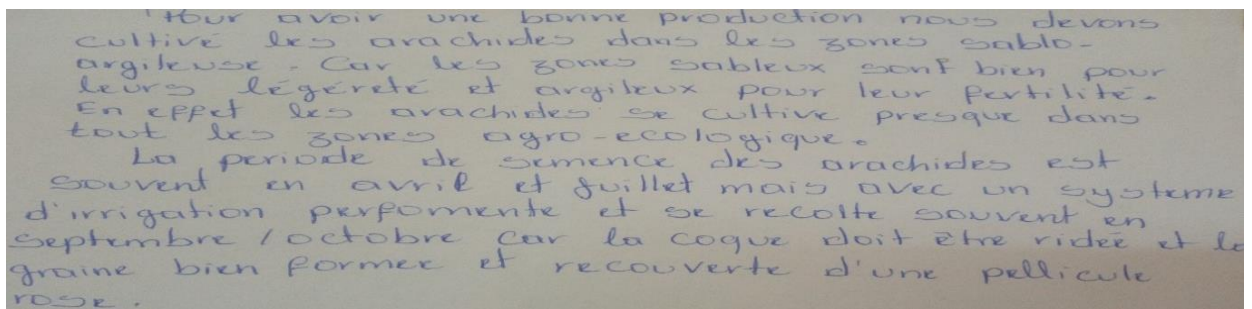 Pour avoir une bonne production nous devons
cultivé les arachides dans les zones sablo-
argileuse. Car les zones sableux sont bien pour
leurs légéreté et argileux pour leur fertilité.
En effet les arachides se cultive presque dans
tout les zones agro-ecologique.
La periode de semence des arachides est
souvent en avril et juillet mais avec un systeme
d'irrigation perfomente et se recolte souvent en
septembre / octobre car la coque doit être ridée et la
graine bien formee et recouverte d'une pellicule
rose.